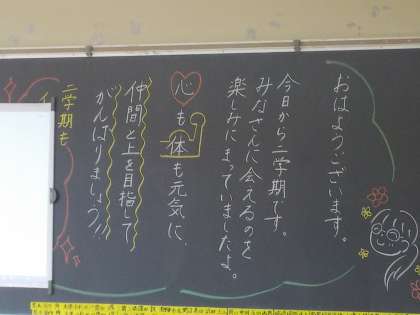 おはようございます。
今日から二学期です。
みなさんに会えるのを
楽しみにまっていましたよ。
心も体も元気に、
仲間と上を目指して
がんばりましょう!!
二学期も